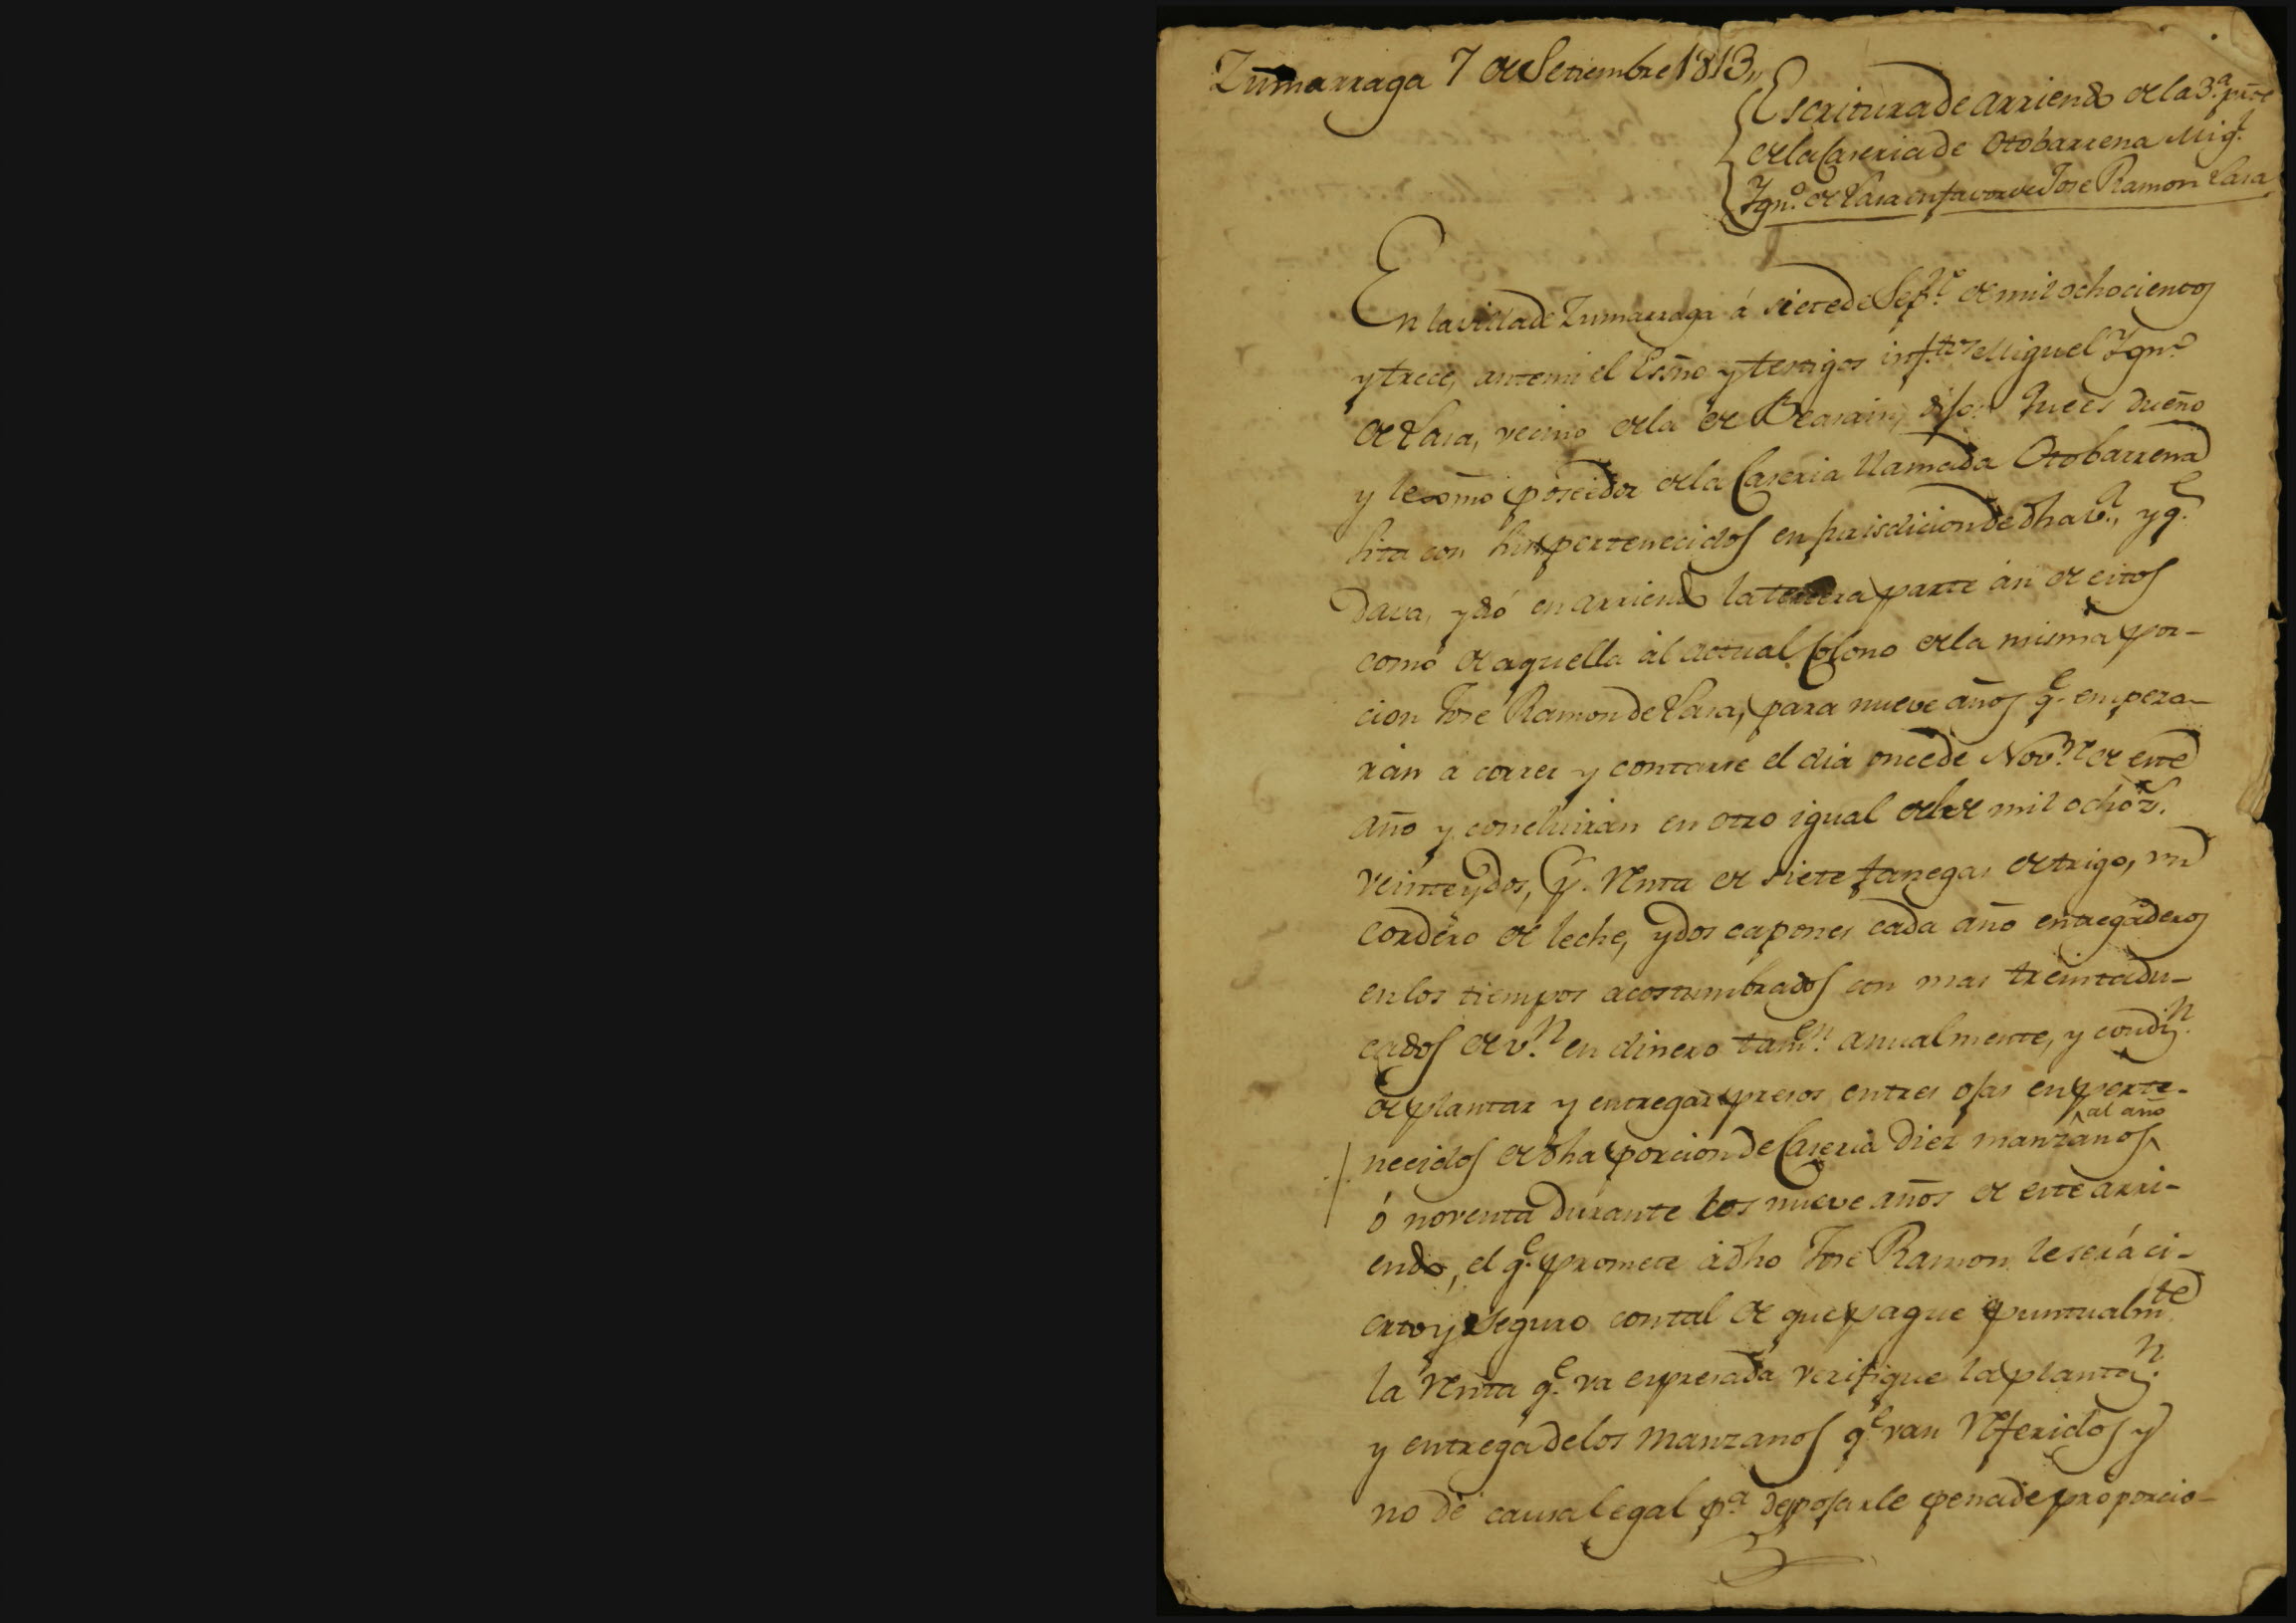 Zumarraga 7 de Setiembre 1813,,
Escritura de arriendo de la 3.ª p.te
de la Caseria de Otobarrena Mig.l
Ygn.º de Lasa en favor de Jose Ramon Lasa
En la villa de Zumarraga á siete de Sep.re de mil ochocientos
y trece, ante mi el Esño y testigos inf.tos Miguel Ygn.º
de Lasa, vecino de la de Beasain, dijo: Que es dueño
y lexmo poseidor de la Caseria llamada Otobarrena
sita con sus pertenecidos en jurisdicion de dha v.ª, y q.e
dava, y dió en arriendo la tercera parte asi de estos
como de aquella al actual Colono de la misma por-
cion Jose Ramon de Lasa, para nueve años q.e empeza-
rán á correr y contarse el dia once de Nov.re de este
año y concluirán en otro igual del de mil ochoz.s
veinte y dos, p.r renta de siete fanegas de trigo, un
cordero de leche, y dos capones cada año entregaderos
en los tiempos acostumbrados con mas treinta du-
cados de v.n en dinero tamb.en anualmente, y condiz.n
de plantar y entregar presos en tres ojas en perte-
necidos de dha porcion de Caseria diez manzanos ^al año
ó noventa durante los nueve años de este arri-
endo, el q.e promete á dho Jose Ramon le será ci-
erto y seguro con tal de que pague puntualm.te
la renta q.e va expresada verifique la plantaz.n
y entrega de los manzanos q.e van referidos y
no dé causa legal p.a despojarle pena de proporcio-